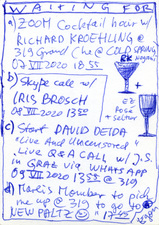 WAITING FOR
a) ZOOM Cocktail hour w/
RICHARD KROEHLING @
319 Grand (he @ COLD SPRING)
07 VII 2020 18:55
RK
b) Skype call w/
IRIS BROSCH
08 VII 2020 13:55
EZ
POST
+ seltzer
c) Start DAVID DEIDA
"Live And Uncensored"
Live Q&A CALL w/ J.S.
in GRAZ via WHATSAPP
09 VII 2020 13:55 @ 319
d) Member to pick
me up @ 319 to go to
NEW PALTZ
17:45